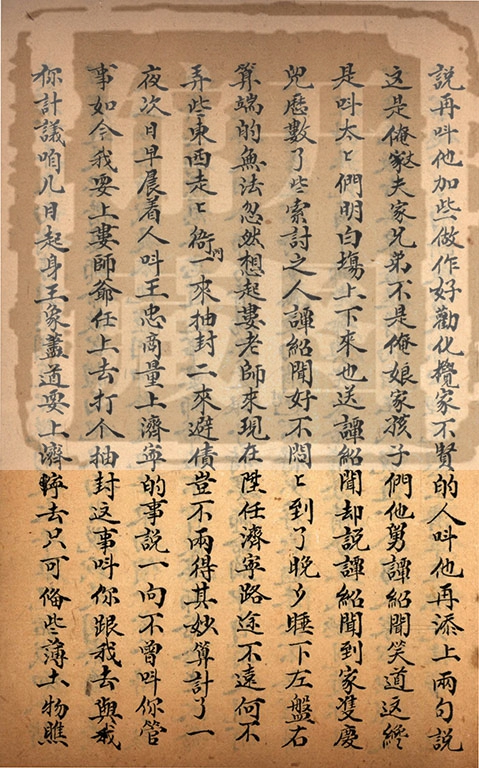 說再叫他加些做作好勸化攪家不賢的人叫他再添上兩句說
這是俺家夫家兄弟不是俺娘家孩子們他舅譚紹聞笑道这經
是叫太〻們明白塲上下來也送譚紹聞却説譚紹聞到家雙慶
兒歷數了些索討之人譚紹聞好不悶〻到了晚夕睡下左盤右
算端的無法忽然想起婁老師來現在陞任濟寧路途不遠何不
弄些東西走〻衙門一來抽封二來避債豈不兩得其妙算計了一
夜次日早晨着人叫王忠商量上濟寧的事説一向不曾叫你管
事如今我要上婁師爺任上去打个抽封这事叫你跟我去與我
你計議咱几日起身王象藎道要上濟寧去只可俻些薄土物瞧